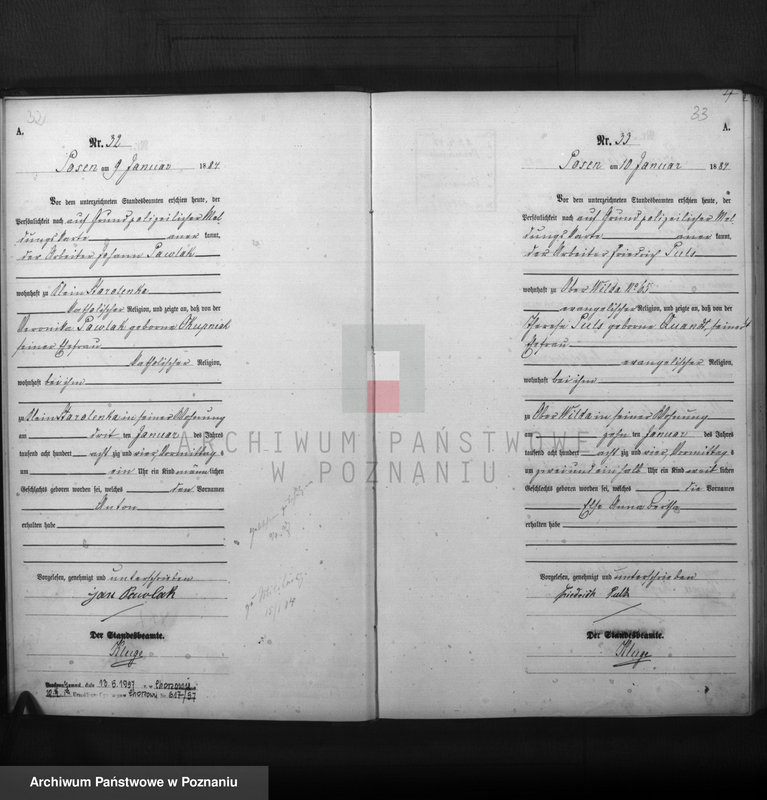 32
A.
Nr. 32
Posen am 9 Januar 1884
Vor dem unterzeichneten Standesbeamten erschien heute, der
Persönlichkeit nach auf Grund polizeilicher Mel
dungskarte aner kannt,
der Arbeiter Johann Pawlak
wohnhaft zu Klein Starolenka
katholischer Religion, und zeigte an, daß von der
Veronika Pawlak geborne Skupniak
seiner Ehefrau
katholischer Religion,
wohnhaft bei ihm
zu Klein Starolenka in seiner Wohnung
am drit ten Januar des Jahres
tausend acht hundert acht zig und vier Vormittag s
um ein Uhr ein Kind männ lichen
Geschlechts geboren worden sei, welches den Vornamen
Anton
erhalten habe
Vorgelesen, genehmigt und unterschrieben
Jan Pawlak
Der Standesbeamte.
Kluge
13.6.1937 Chorzowie
Chorzowy Nr. 617/37
15/1 84
4
33
A.
Nr. 33
Posen am 10 Januar 1884
Vor dem unterzeichneten Standesbeamten erschien heute, der
Persönlichkeit nach auf Grund polizeilicher Mel
dungskarte aner kannt,
der Arbeiter Friedrich Puls
wohnhaft zu Ober Wilda No 65
evangelischer Religion, und zeigte an, daß von der
Therese Puls geborne Quandt, seiner
Ehefrau
evangelischer Religion,
wohnhaft bei ihm
zu Ober Wilda in seiner Wohnung
am zehn ten Januar des Jahres
tausend acht hundert acht zig und vier Vormittag s
um zwei und ein halb Uhr ein Kind weib lichen
Geschlechts geboren worden sei, welches die Vornamen
Else Anna Bertha
erhalten habe
Vorgelesen, genehmigt und unterschrieben
Friedrich Puls
Der Standesbeamte.
Kluge
ARCHIWUM PAŃSTWOWE
W POZNANIU
Archiwum Państwowe w Poznaniu